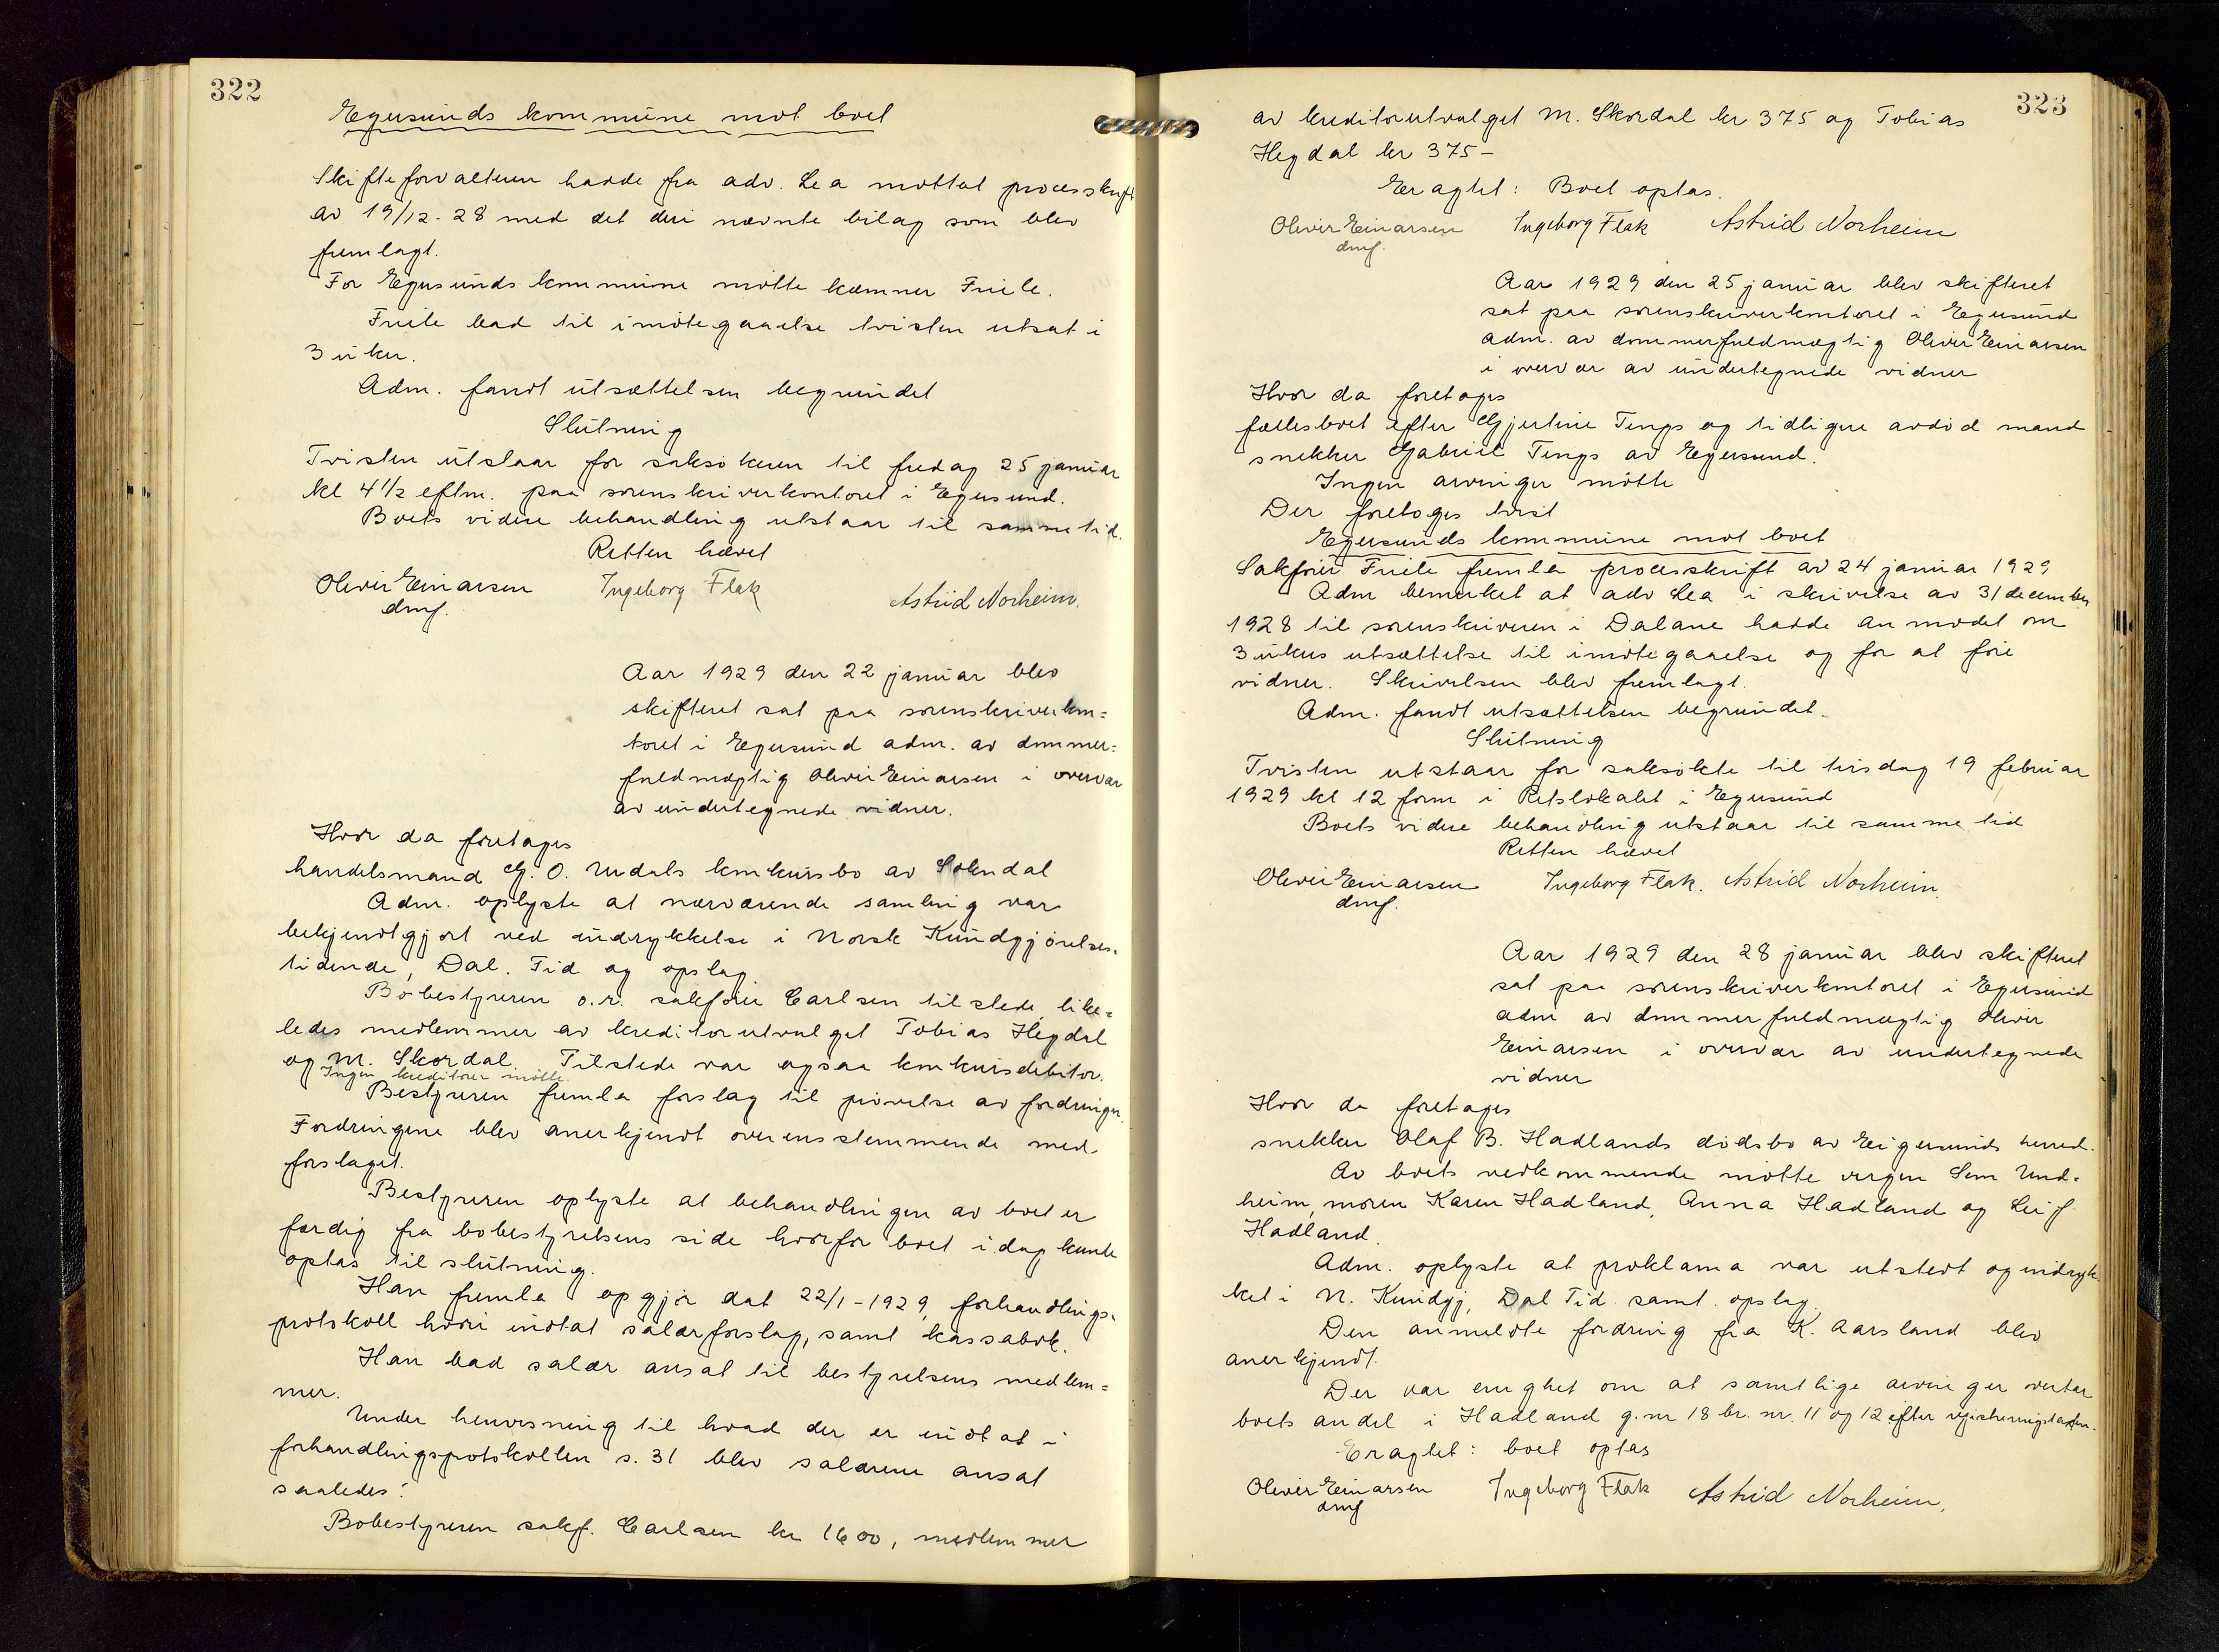 322
Egersunds kommune mot boet
Skifteforvalteren hadde fra adv. Lea mottat processkrift
av 19/12-28 med det deri nævnte bilag som blev
fremlagt.
For Egersunds kommune møtte kæmner Friile.
Friile bad til imøtegaaelse tvisten utsat i
3 uker.
Adm. fandt utsættelsen begrundet
Slutning
Tvisten utstaar for saksøkeren til fredag 25 januar
kl 4 1/2 eftm. paa sorenskriverkontoret i Egersund.
Boets videre behandling utstaar til samme tid.
Retten hævet
Oliver Einarsen Ingeborg Flak Astrid Norheim.
dmf.
Aar 1929 den 22 januar blev
skifteret sat paa sorenskriverkon=
toret i Egersund adm. av dommer=
fuldmægtig Oliver Einarsen i overvær
av undertegnede vidner.
Hvor da foretages
handelsmand G. O. Urdals konkursbo av Sokndal
Adm. oplyste at nærværende samling var
bekjendtgjort ved indrykkelse i Norsk Kundgjørelses-
tidende, Dal. Tid og opslag
Bobestyreren o.r. sakfører Carlsen tilstede, like=
ledes medlemmer av kreditorutvalget Tobias Hegdal
og M. Skordal. Tilstede var ogsaa konkursdebitor.
Ingen kreditorer møtte.
Bestyreren fremla forslag til prøvelse av fordringer
Fordringene blev anerkjendt overensstemmende med
forslaget.
Bestyreren oplyste at behandlingen av boet er
færdig fra bobestyrelsens side hvorfor boet idag kunde
optas til slutning.
Han fremla opgjør dat 22/1-1929, forhandlings-
protokoll hvori indtat salærforslag, samt kassabok.
Han bad salær ansat til bestyrelsens medlem=
mer.
Under henvisning til hvad der er indtat i
forhandlingsprotokollen s. 31 blev salærene ansat
saaledes:
Bobestyreren sakf. Carlsen kr 1600, medlemmer
323
av kreditorutvalget M. Skordal kr 375 og Tobias
Hegdal kr 375-
Eragtet: Boet optas.
Oliver Einarsen Ingeborg Flak Astrid Norheim
dmf.
Aar 1929 den 25 januar blev skifteret
sat paa sorenskriverkontoret i Egersund
adm. av dommerfuldmægtig Oliver Einarsen
i overvær av undertegnede vidner
Hvor da foretages
fællesboet efter Gjertine Tengs og tidligere avdød mand
snekker Gabriel Tengs av Egersund.
Ingen arvinger møtte
Der foretoges tvist
Egersunds kommune mot boet
Sakfører Friile fremla processkrift av 24 januar 1929
Adm bemerket at adv Lea i skrivelse av 31 december
1928 til sorenskriveren i Dalane hadde anmodet om
3 ukers utsættelse til imøtegaaelse og for at føre
vidner. Skrivelsen blev fremlagt.
Adm. fandt utsættelsen begrundet.
Slutning
Tvisten utstaar for saksøkte til tirsdag 19 februar
1929 kl 12 form i Retslokalet i Egersund
Boets videre behandling utstaar til samme tid
Retten hævet
Oliver Einarsen Ingeborg Flak. Astrid Norheim.
dmf.
Aar 1929 den 28 januar blev skifteret
sat paa sorenskriverkontoret i Egersund
adm av dommerfuldmægtig Oliver
Einarsen i overvær av undertegnede
vidner
Hvor da foretages
snekker Olaf B. Hadlands dødsbo av Eigersunds herred.
Av boets vedkommende møtte vergen Sem Und-
heim, moren Karen Hadland, Anna Hadland og Leif
Hadland.
Adm. oplyste at proklama var utstedt og indryk-
ket i N. Kundgj, Dal Tid. samt. opslag.
Den anmeldte fordring fra K. Aarsland blev
anerkjendt.
Der var enighet om at samtlige arvinger overtar
boets andel i Hadland g.nr 18 br. nr. 11 og 12 efter registreringstaksten.
Eragtet: boet optas
Oliver Einarsen Ingeborg Flak Astrid Norheim.
dmf